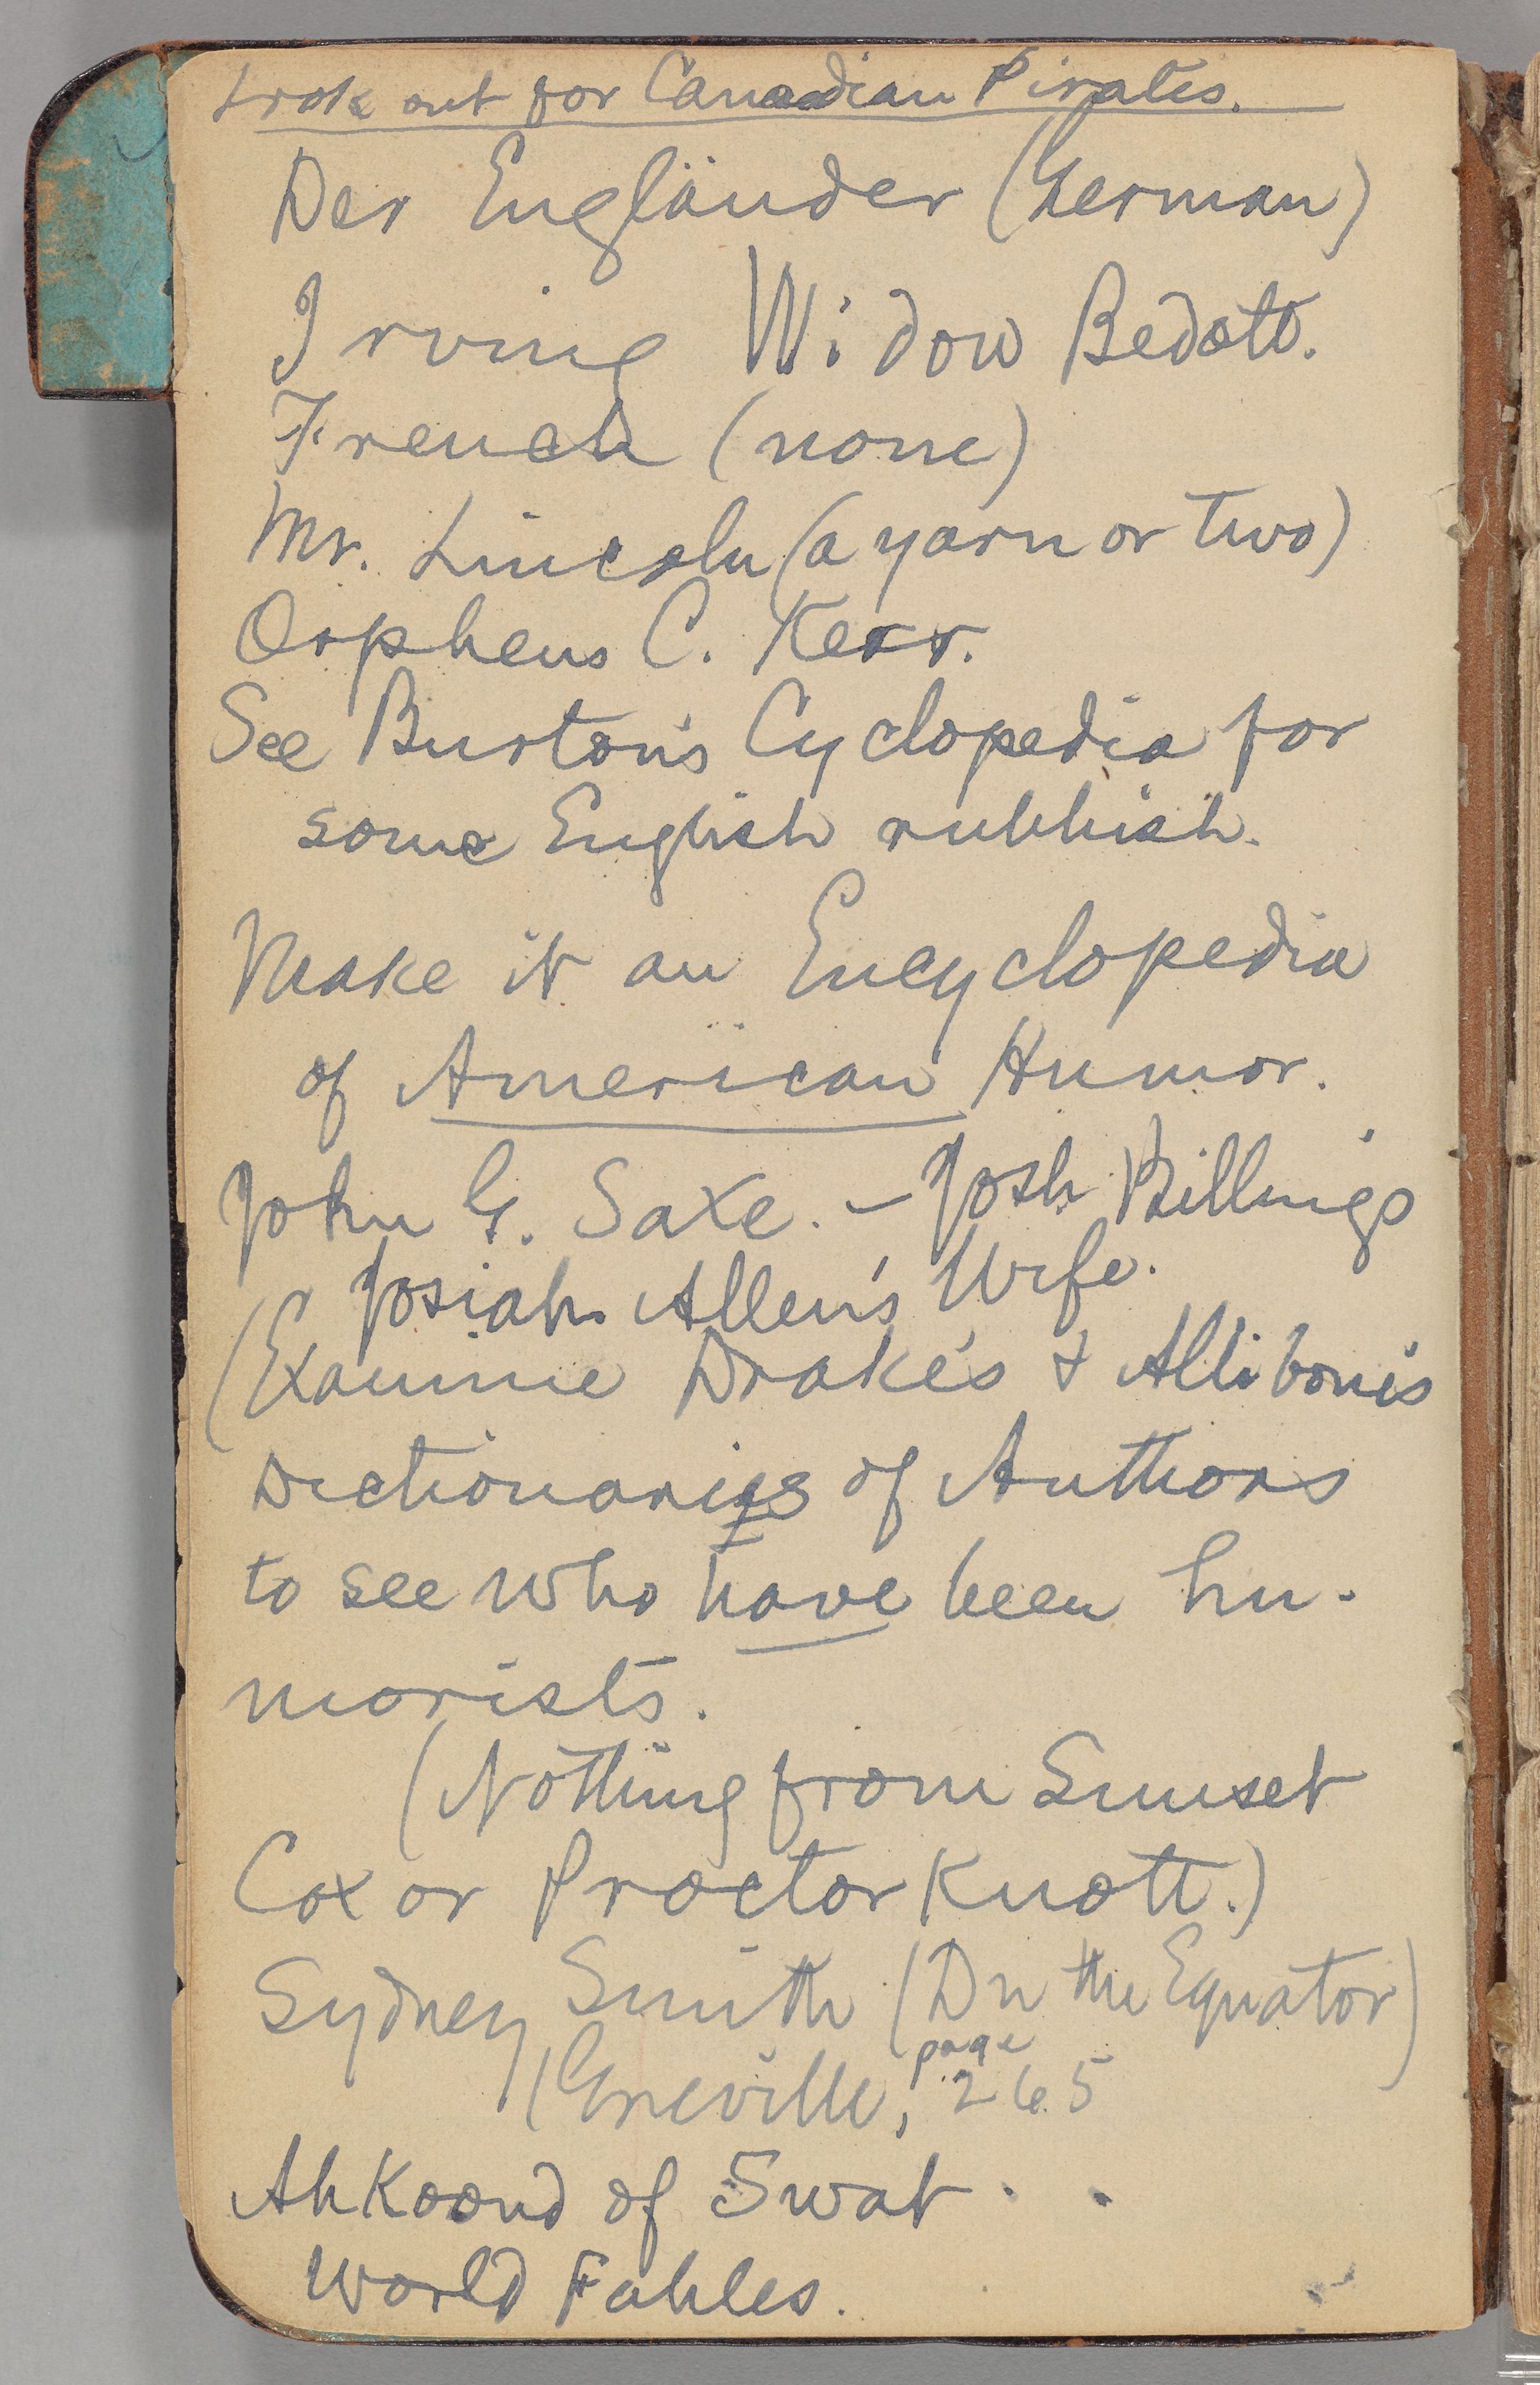 Look out for Canadian Pirates.
Der Engländer (German)
Irving Widow Bedott.
French (none)
Mr. Lincoln (a yarn or two)
Orpheus C. Kerr.
See Burton's Cyclopedia for
some English rubbish.
Make it an Encyclopedia
of American Humor.
John G. Saxe. – Josh Billings
Josiah Allen's Wife.
(Examine Drake's & Allibone's
Dictionaries of Authors
to see who have been hu-
morists.
(Nothing from Sunset
Cox or Proctor Knott.)
Sydney Smith (Dn the Equator)
(Greville, page 265
Ahkoond of Swat.
World Fables.